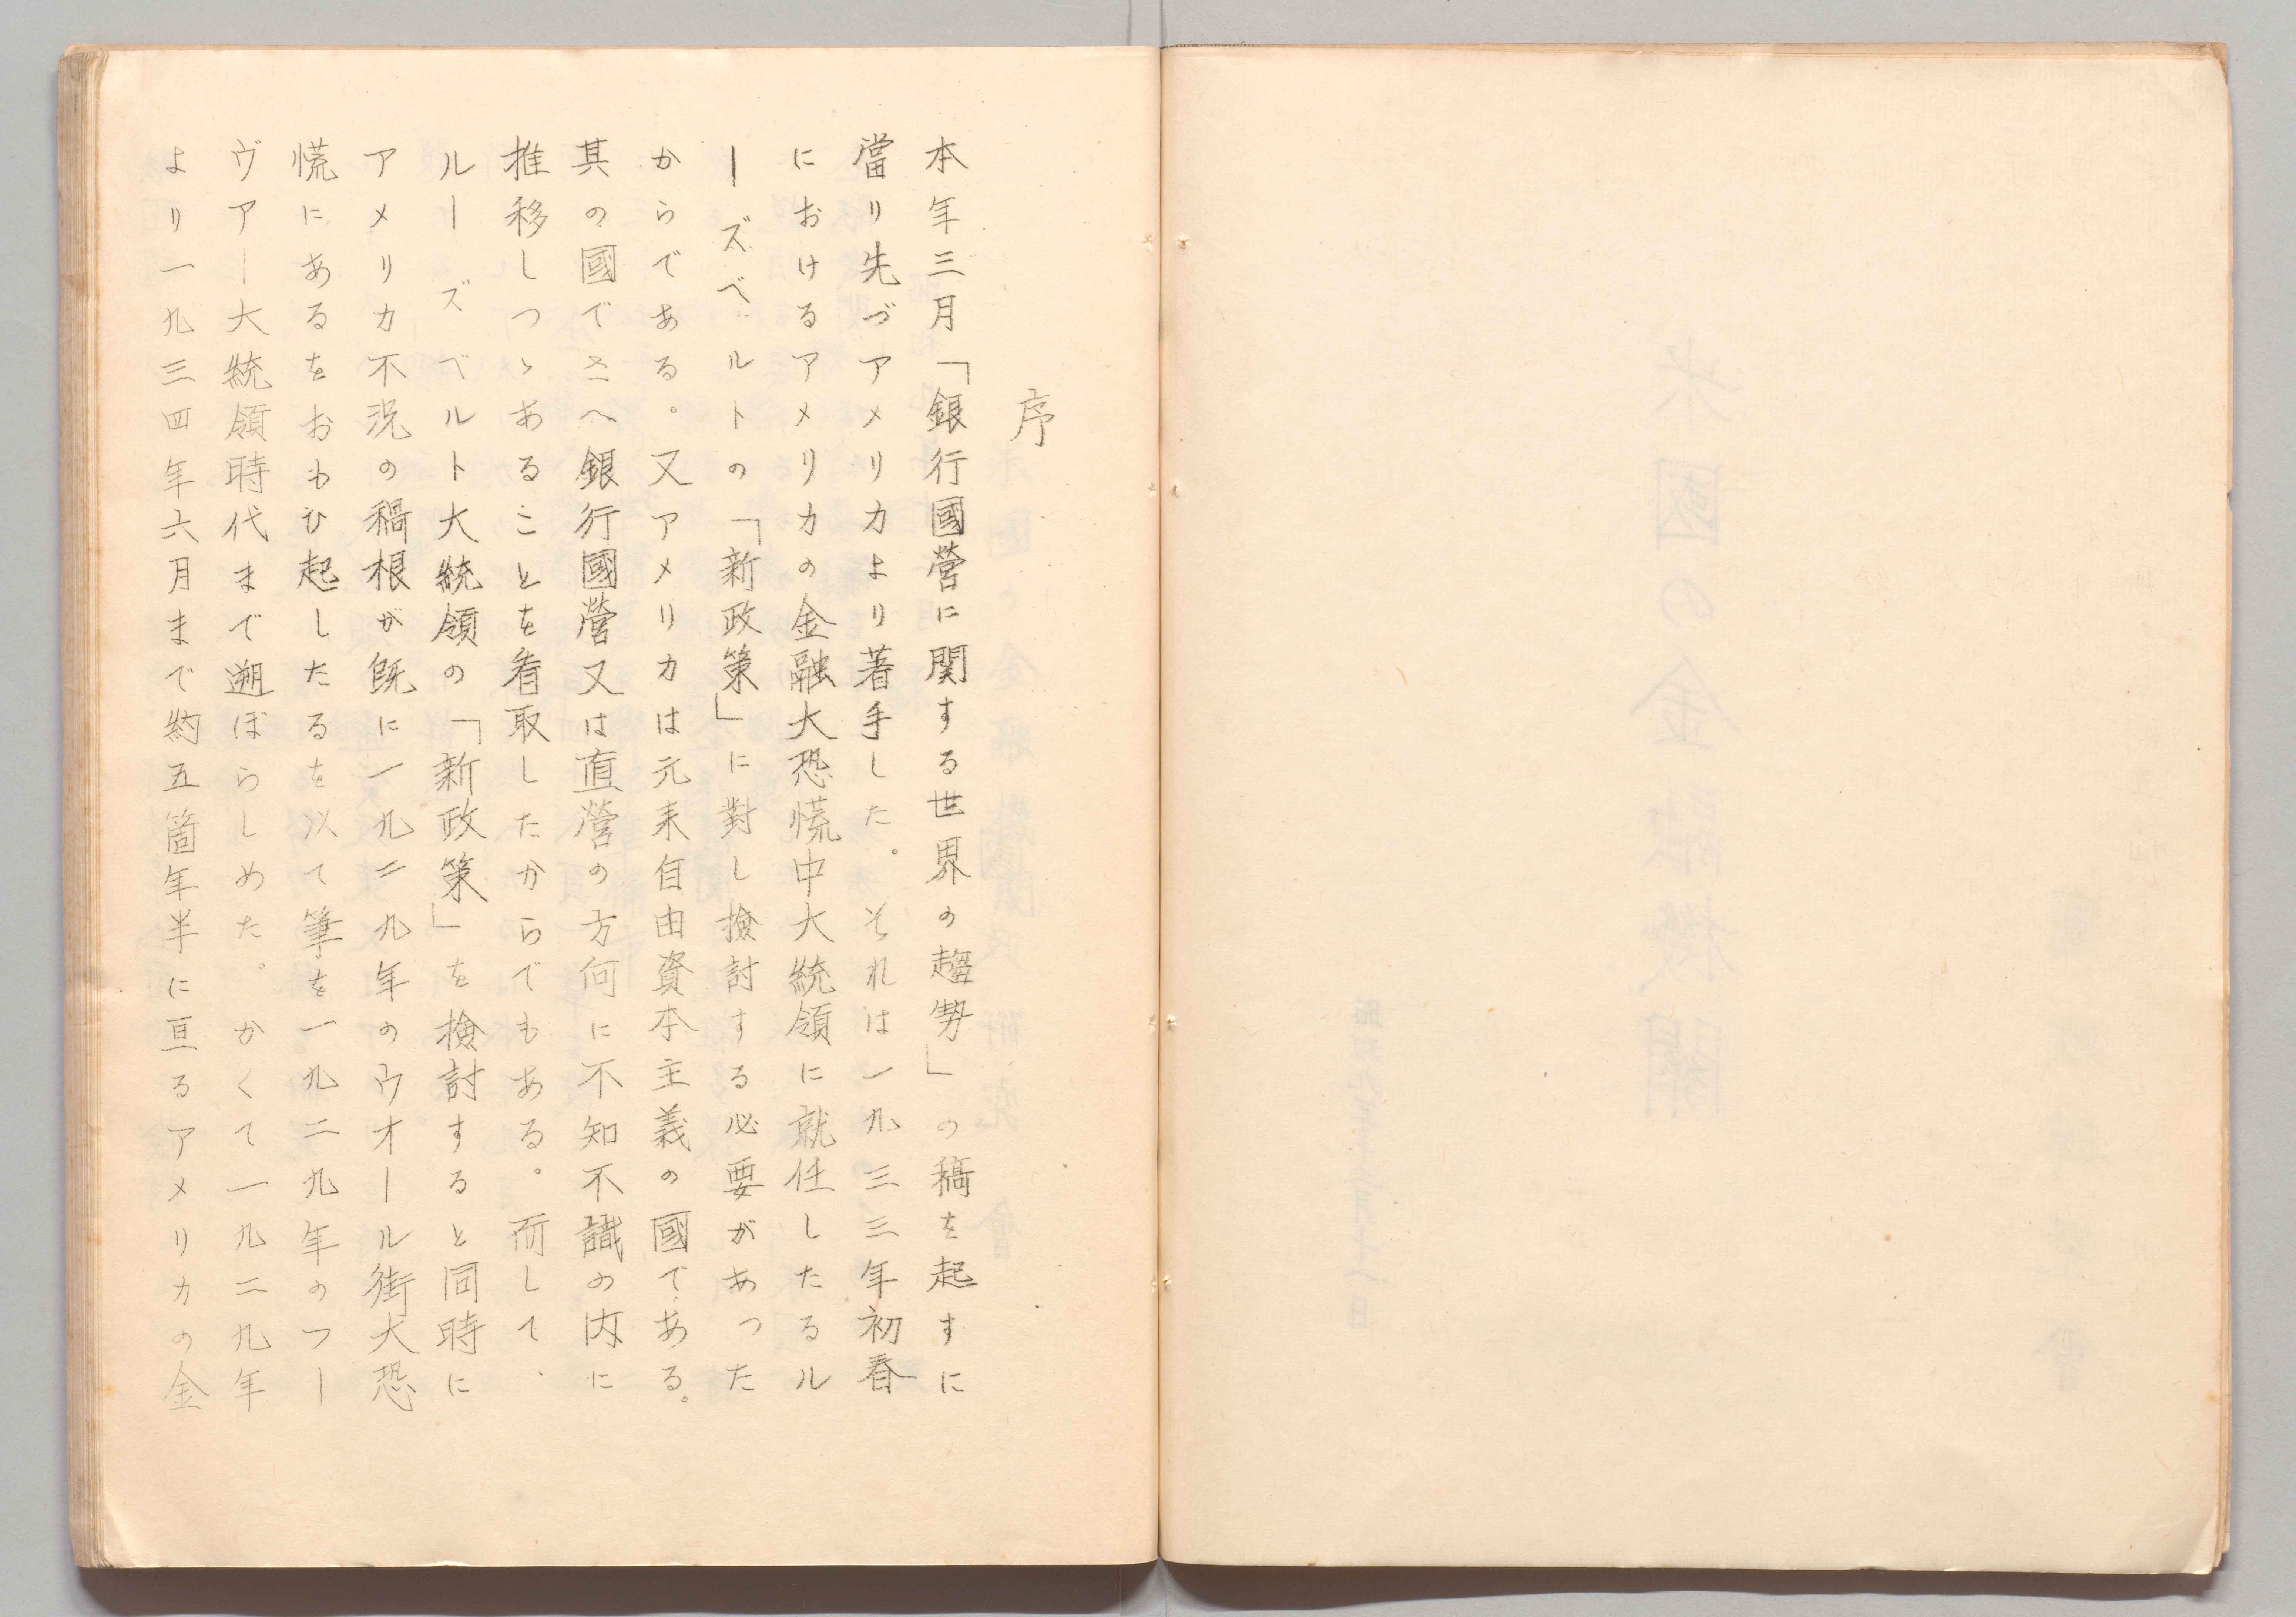 序
本年三月「銀行國營に関する世界の趨勢」の稿を起すに
當り先づアメリカより著手した。それは一九三三年初春
におけるアメリカの金融大恐慌中大統領に就任したるル
ーズベルトの「新政策」に對し檢討する必要があつた
からである。又アメリカは元来自由資本主義の國である。
其の國でさへ銀行國營又は直營の方何に不知不識の内に
推移しつゝあることを看取したからでもある。而して、
ルーズベルト大統領の「新政策」を檢討すると同時に
アメリカ不況の禍根が既に一九二九年のウオール街大恐
慌にあるをおもひ起したるを以て筆を一九二九年のフー
ヴアー大統領時代まで遡ぼらしめた。かくて一九二九年
より一九三四年六月まで約五箇年半に亘るアメリカの金